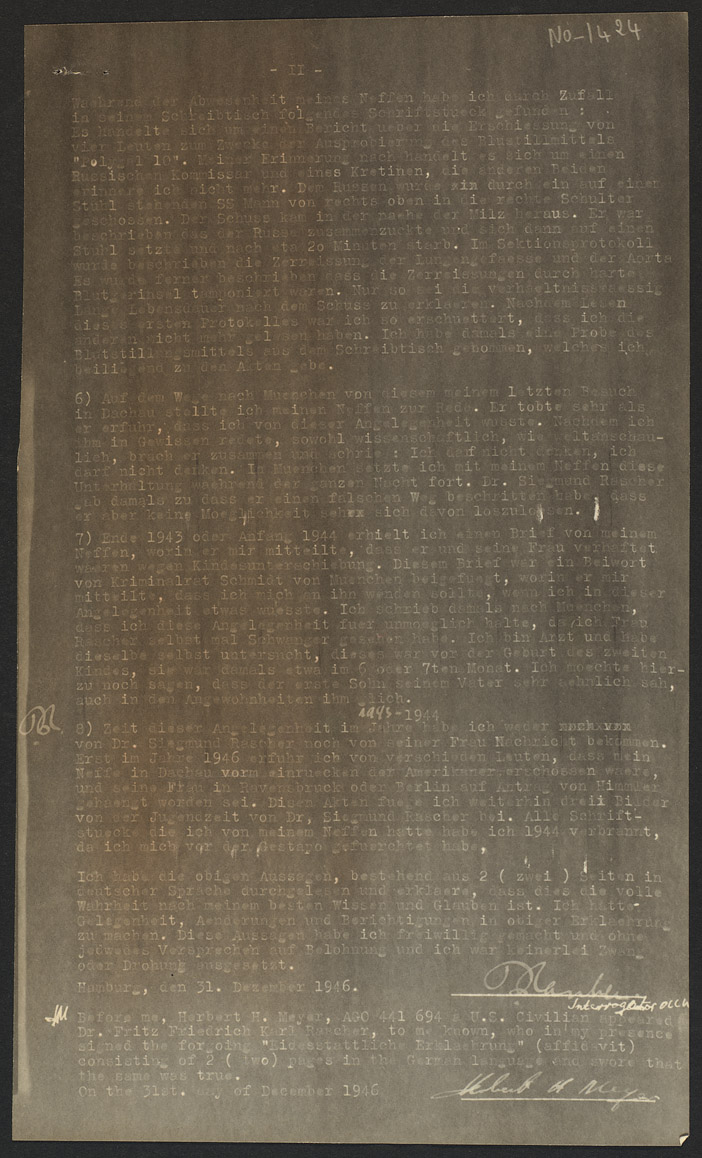 No-1424
- II -
Waehrend der Abwesenheit meines Neffen habe ich durch Zufall
in seinem Schreibtisch folgendes Schriftstueck gefunden :
Es handelte sich um einen Bericht ueber die Erschiessung von
vier Leuten zum Zwecke der Ausprobierung des Blutstillmittels
"Polygal 10". Meiner Erinnerung nach handelt es sich um einen
Russischen Kommissar und eines Kretinen, die anderen Beiden
erinnere ich nicht mehr. Dem Russen wurde xin durch ein auf einem
Stuhl stehenden SS Mann von rechts oben in die rechte Schulter
geschossen. Der Schuss kam in der naehe der Milz heraus. Er war
beschrieben dass der Russe zusammenzuckte und sich dann auf einen
Stuhl setzte und nach eta 20 Minuten starb. Im Sektionsprotokoll
wurde beschrieben die Zerreissung der Lungengefaesse und der Aorta
Es wurde ferner beschrieben dass die Zerreissungen durch harte
Blutgerinsel tamponiert waren. Nur so sei die verhaeltnissmessig
lange Lebensdauer nach dem Schuss zu erklaeren. Nachdem Lesen
dieses ersten Protokolles war ich so erschuettert, dass ich die
anderen nicht mehr gelesen haben. Ich habe damals eine Probe des
Blutstillungsmittels aus dem Schreibtisch genommen, welches ich
beiliegend zu den Akten gebe.
6) Auf dem Wege nach Muenchen von diesem meinem letzten Besuch
in Dachau stellte ich meinen Neffen zur Rede. Er tobte sehr als
er erfuhr, dass ich von dieser Angelegenheit wusste. Nachdem ich
ihm im Gewissen redete, sowohl wissenschaftlich, wie weltanschau-
lich, brach er zusammen und schrie : Ich darf nicht denken, ich
darf nicht denken. In Muenchen setzte ich mit meinem Neffen diese
Unterhaltung waehrend der ganzen Nacht fort. Dr. Siegmund Rascher
gab damals zu dass er einen falschen Weg beschritten habe, dass
er aber keine Moeglichkeit sehex sich davon loszuloesen.
7) Ende 1943 oder Anfang 1944 erhielt ich einen Brief von meinem
Neffen, worin er mir mitteilte, dass er und seine Frau verhaftet
waeren wegen Kindesunterschiebung. Diesem Brief war ein Beiwort
von Kriminalrat Schmidt von Muenchen beigefuegt, worin er mir
mitteilte, dass ich mich an ihn wenden sollte, wenn ich in dieser
Angelegenheit etwas wuesste. Ich schrieb damals nach Muenchen,
dass ich diese Angelegenheit fuer unmoeglich halte, da ich Frau
Rascher selbst mal Schwanger gesehen habe. Ich bin Arzt und habe
dieselbe selbst untersucht, dieses war vor der Geburt des zweiten
Kindes, sie war damals etwa im 6 oder 7ten Monat. Ich moechte hier-
zu noch sagen, dass der erste Sohn seinem Vater sehr aehnlich sah,
auch in den Angewohnheiten ihm glich.
1943-1944
8) Zeit dieser Angelegenheit im Jahre habe ich weder
von Dr. Siegmund Rascher noch von seiner Frau Nachricht bekommen.
Erst im Jahre 1946 erfuhr ich von verschieden Leuten, dass mein
Neffe in Dachau vorm einruecken der Amerikaner erschossen waere,
und seine Frau in Ravensbruck oder Berlin auf Antrag von Himmler
gehaengt worden sei. Disen Akten fuege ich weiterhin dreii Bilder
von der Jugendzeit von Dr, Siegmund Rascher bei. Alle Schrift-
stuecke die ich von meinem Neffen hatte habe ich 1944 verbrannt,
da ich mich vor der Gestapo gefuerchtet habe,
Ich habe die obigen Aussagen, bestehend aus 2 ( zwei ) Seiten in
deutscher Sprache durchgelesen und erklaere, dass dies die volle
Wahrheit nach meinem besten Wissen und Glauben ist. Ich hatte
Gelegenheit, Aenderungen und Berichtigungen in obiger Erklaerung
zu machen. Diese Aussagen habe ich freiwillig gemacht und ohne
jedwedes Versprechen auf Belohnung und ich war keinerlei Zwang
oder Drohung ausgesetzt.
Hamburg, den 31. Dezember 1946.
Interrogator OCCW
Before me, Herbert H. Meyer, AGO 441 694 a U.S. Civilian appeared
Dr. Fritz Friedrich Karl Rascher, to me known, who in my presence
signed the forgoing "Eidesstattliche Erklaehrung" (affidavit)
consisting of 2 ( two) pages in the German language and swore that
the same was true.
On the 31st. day of December 1946
Herbert H Meyer